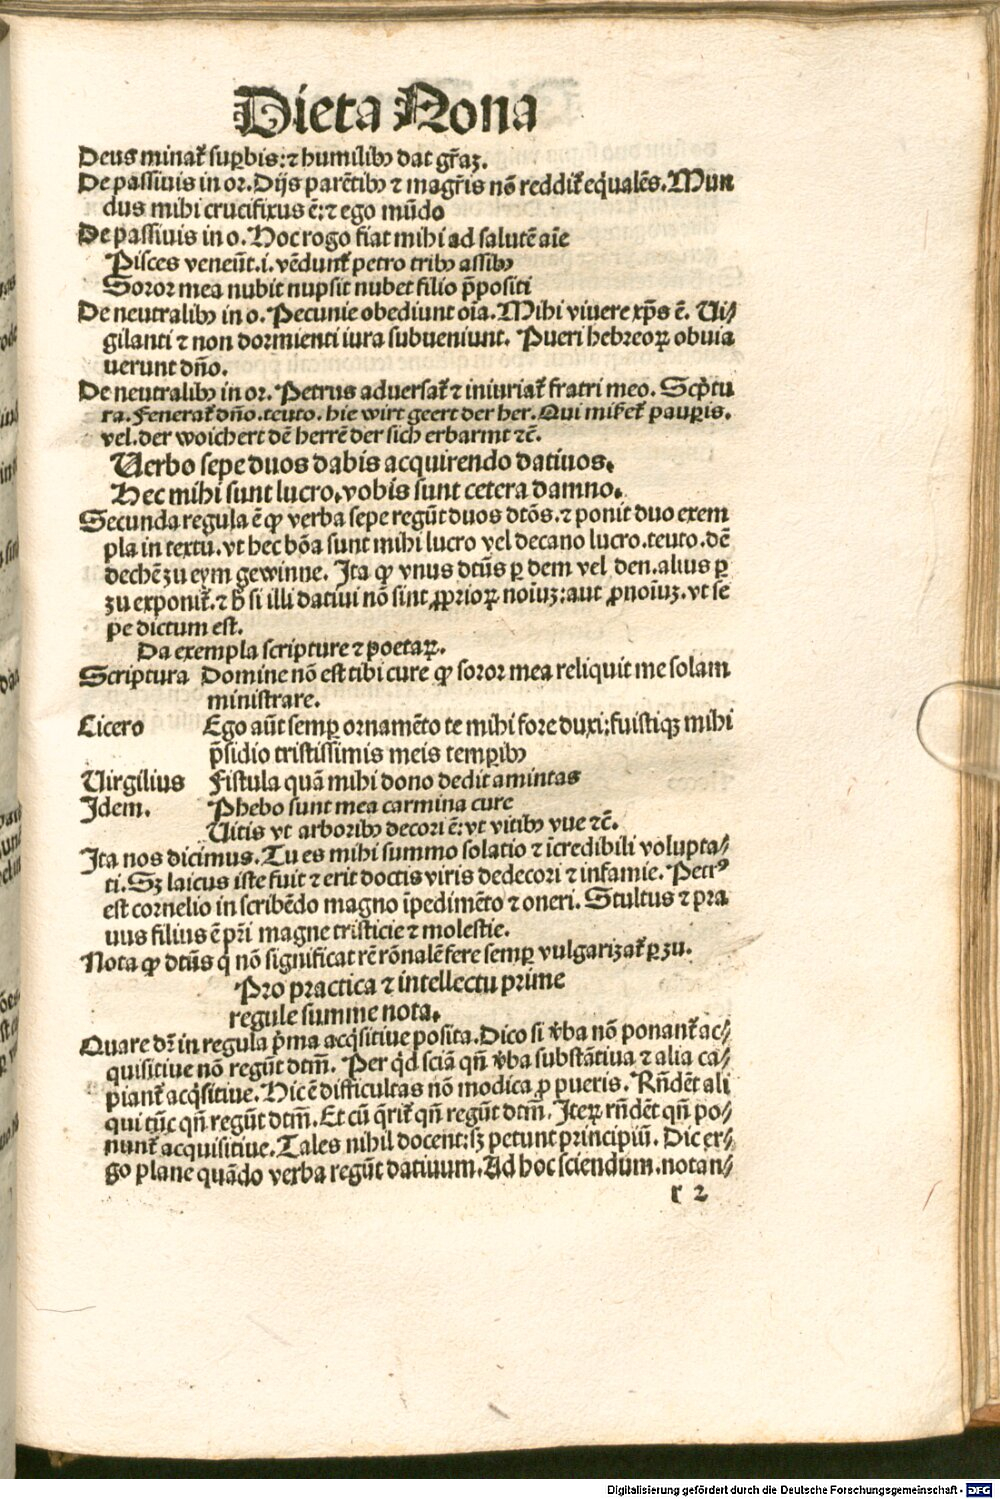 Dieta Nona
Deus minat᷑ suꝑbis: ⁊ humilibꝫ dat gr̄aꝫ.
De passiuis in or. Dijs parētibꝫ ⁊ magr̄is nō reddit᷑ eq̄ualēs. Mun
dus mihi crucifixus ē: ⁊ ego mūdo
De passiuis in o. Hoc rogo fiat mihi ad salutē aīe
Pisces veneūt .i. vēdunt᷑ petro tribꝫ assibꝫ
Soror mea nubit nupsit nubet filio p̄positi
De neutralibꝫ in o. Pecunie obediunt oīa. Mihi viuere xp̄s ē. Ui⸗
gilanti ⁊ non dormienti iura subueniunt. Pueri hebreoꝝ obuia
uerunt dn̄o.
De neutralibꝫ in or. Petrus aduersat᷑ ⁊ iniuriat᷑ fratri meo. Scp̄tu
ra. Fenerat᷑ dn̄o. teuto. hie wirt geert der her. Qui miẜet᷑ pauꝑis.
vel. der woichert dē herrē der sich erbarmt ⁊c̄.
Uerbo sepe duos dabis acquirendo datiuos.
Hec mihi sunt lucro, vobis sunt cetera damno.
Secunda regula ē ꝙ verba sepe regūt duos dtōs. ⁊ ponit duo exem
pla in textu. vt hec bōa sunt mihi lucro vel decano lucro. teuto. dē
dechē zu eym gewinne. Ita ꝙ vnus dtūs ꝑ dem vel den. alius ꝑ
zu exponit᷑. ⁊ h̄ si illi datiui nō sint ꝓprioꝝ noīuꝫ: aut ꝓnoīuꝫ. vt se
pe dictum est.
Da exempla scripture ⁊ poetaꝝ.
Scriptura Domine nō est tibi cure ꝙ soror mea reliquit me solam
ministrare.
Cicero Ego aūt semꝑ ornamēto te mihi fore duxi: fuistiqꝫ mihi
p̄sidio tristissimis meis temꝑibꝫ
Uirgilius Fistula quā mihi dono dedit amintas
Idem. Phebo sunt mea carmina cure
Uitis vt arboribꝫ decori ē: vt vitibꝫ vue ⁊c̄.
Ita nos dicimus. Tu es mihi summo solatio ⁊ īcredibili volupta⸗
ti. Sꝫ laicus iste fuit ⁊ erit doctis viris dedecori ⁊ infamie. Petrꝰ
est cornelio in scribēdo magno īpedimēto ⁊ oneri. Stultus ⁊ pra
uus filius ē pr̄i magne tristicie ⁊ molestie.
Nota ꝙ dtūs q̄ nō significat rē rōnalē fere semꝑ vulgarizat᷑ ꝑ zu.
Pro practica ⁊ intellectu prime
regule summe nota.
Quare dr̄ in regula p̄ma acq̄sitiue posita. Dico si v̄ba nō ponant᷑ ac⸗
quisitiue nō regūt dtm̄. Per qd̄ sciā qn̄ v̄ba substātiua ⁊ alia ca⸗
piant᷑ acq̄sitiue. Hic ē difficultas nō modica ꝓ pueris. Rn̄dēt ali
qui tūc qn̄ regūt dtm̄. Et cū q̄rit᷑ qn̄ regūt dtm̄. Iteꝝ rn̄dēt qn̄ po⸗
nunt᷑ acquisitiue. Tales nihil docent: sꝫ petunt principiū. Dic er⸗
go plane quādo verba regūt datiuum. Ad hoc sciendum. notan⸗
r 2
Digitalisierung gefördert durch die Deutsche Forschungsgemeinschaft - DFG